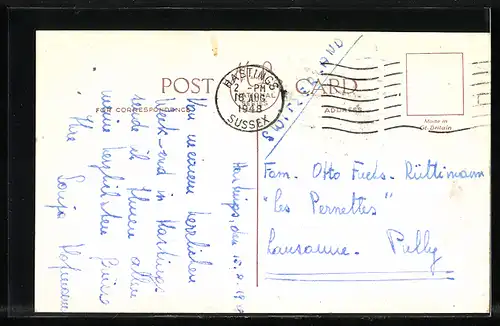 POST CARD
FOR CORRESPONDENCE
ADDRESS
HASTINGS
2 - PM
16 AUG
1948
SUSSEX
SWITZERLAND
Made in
Gt. Britain
Hastings, den 15.8.
Von meinem herrlichen
Week-end in Hastings
sende ich Ihnen allen
meine herzlichsten Grüsse
Ihre
Sonja
Fam. Otto Fuchs-Rüttimann
"Les Pernettes"
Lausanne-Pully